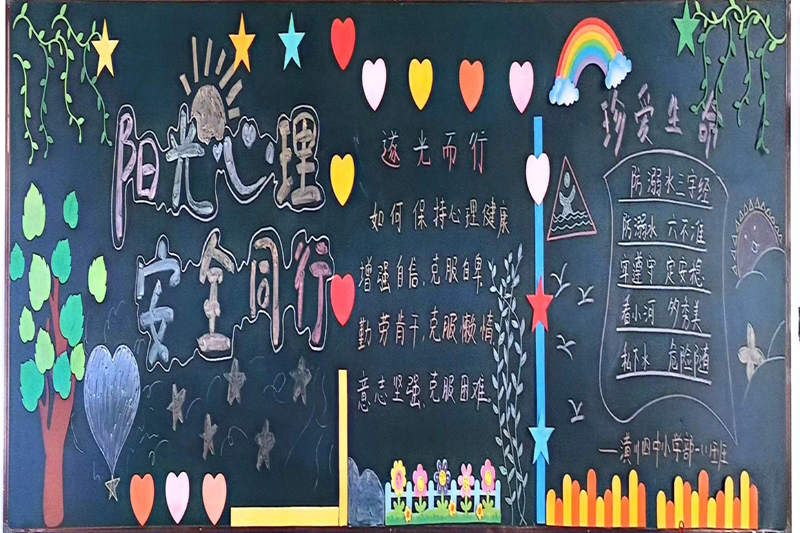 阳光心理
安全同行
逐光而行
如何保持心理健康
增强自信、克服自卑
勤劳肯干、克服懒惰
意志坚强、克服困难
珍爱生命
防溺水三字经
防溺水 六不准
宜遵守 定安稳
看小河 多秀美
私下水 危险随
四中小学部一